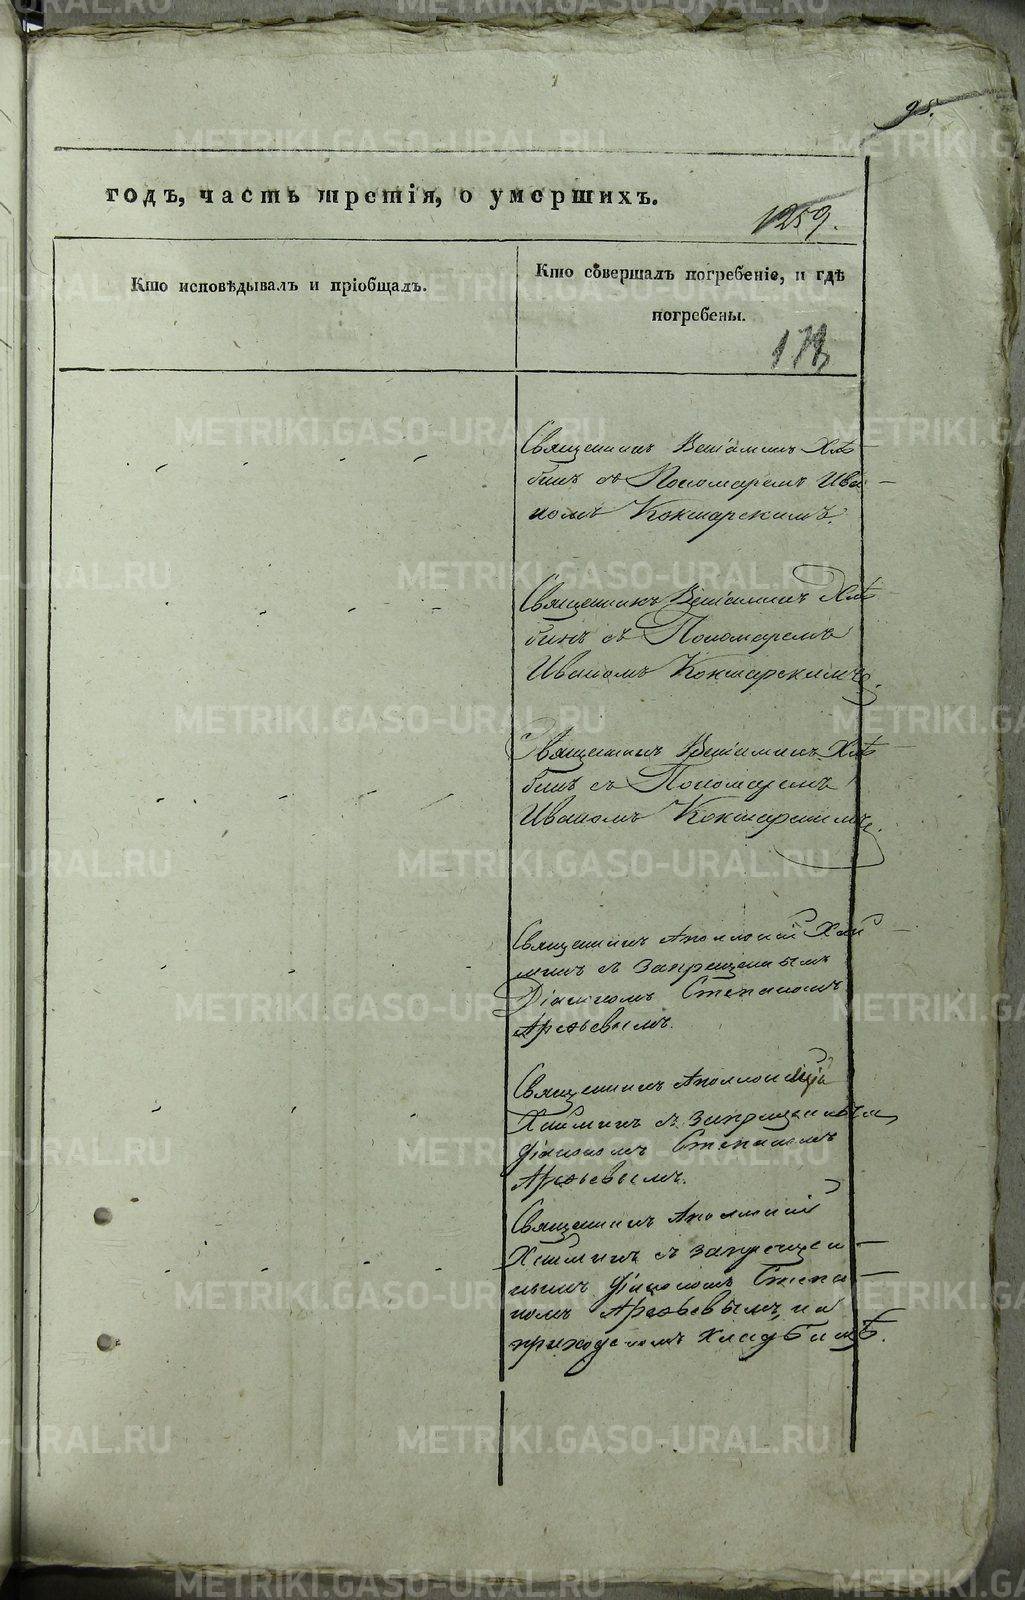 95.
годъ, часть третія, о умершихъ.
1259.
Кто исповѣдывалъ и пріобщалъ.
Кто совершалъ погребеніе, и гдѣ
погребены.
Священникъ Веніаминъ Хлѣ-
бинъ съ Пономаремъ Ива-
номъ Кокшарскимъ.
Священникъ Веніаминъ Хлѣ-
бинъ съ Пономаремъ
Иваномъ Кокшарскимъ.
Священникъ Веніаминъ Хлѣ-
бинъ съ Пономаремъ
Иваномъ Кокшарскимъ.
Священникъ Аполлоній
съ запрещеннымъ
Діакономъ Степаномъ
Арефьевымъ.
Священникъ Аполлоній
съ запрещеннымъ
діакономъ Степаномъ
Арефьевымъ.
Священникъ Аполлоній
съ запрещен-
нымъ діакономъ Степа-
номъ Арефьевымъ, на
приходскомъ кладбищѣ.
METRIKI.GASO-URAL.RU